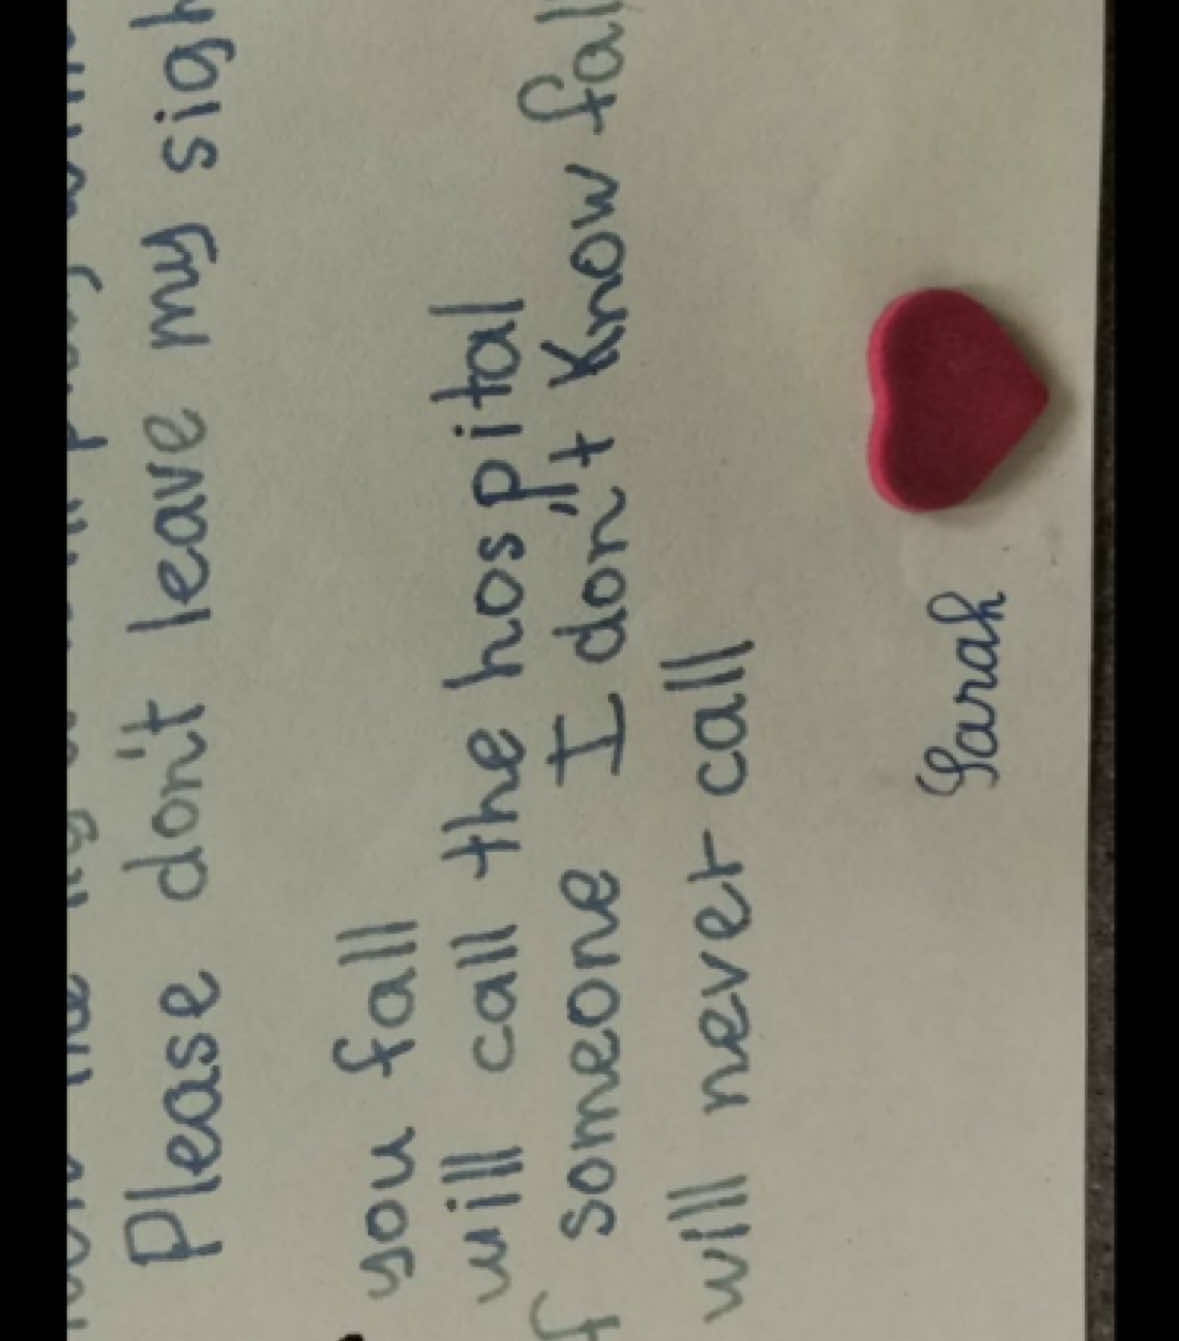 Please don't leave my sigh
you fall
will call the hospital
f someone I don't know fall
will never call
Sarah